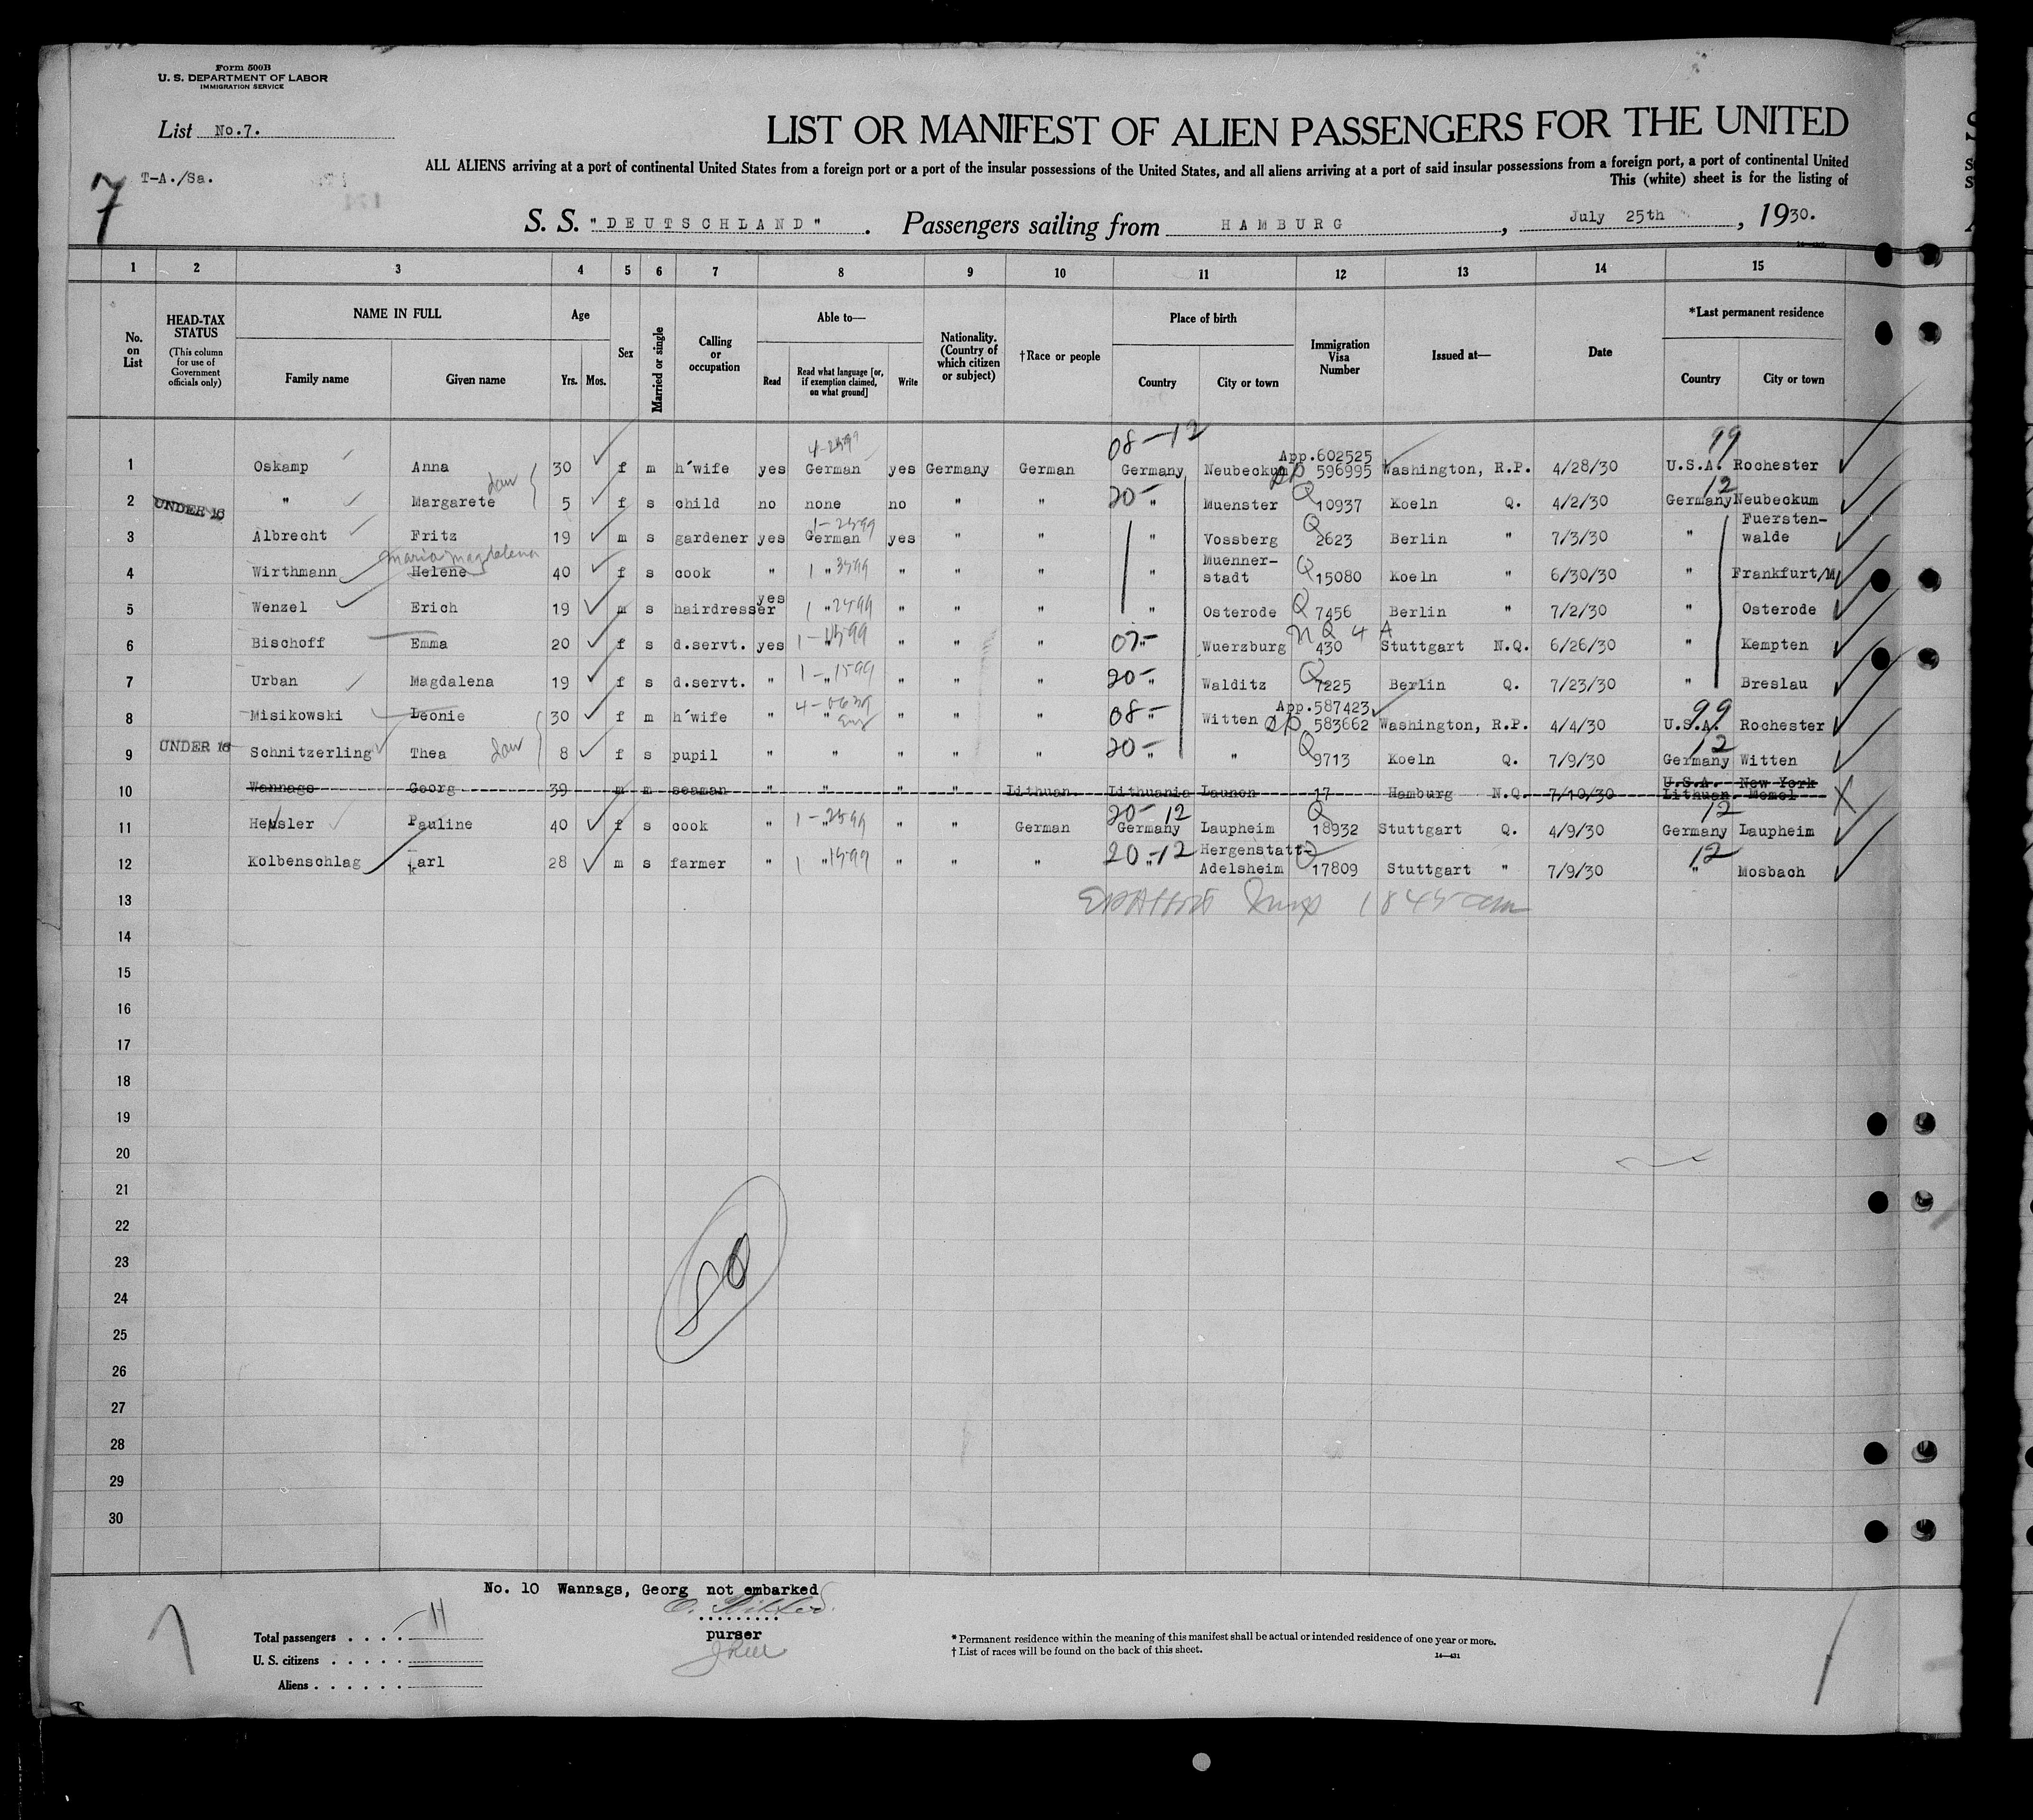 Form 500B
U. S. DEPARTMENT OF LABOR
IMMIGRATION SERVICE
List No.7.
LIST OR MANIFEST OF ALIEN PASSENGERS FOR THE UNITED
ALL ALIENS arriving at a port of continental United States from a foreign port or a port of the insular possessions of the United States, and all aliens arriving at a port of said insular possessions from a foreign port, a port of continental United
This (white) sheet is for the listing of
7 T-A./Sa.
S. S. "DEUTSCHLAND". Passengers sailing from HAMBURG, July 25th, 1930.
1 2 3 4 5 6 7 8 9 10 11 12 13 14 15
No. on List
HEAD-TAX STATUS (This column for use of Government officials only)
NAME IN FULL
Family name
Given name
Age
Yrs. Mos.
Sex
Married or single
Calling or occupation
Able to—
Read
Read what language [or, if exemption claimed, on what ground]
Write
Nationality. (Country of which citizen or subject)
†Race or people
Place of birth
Country
City or town
Immigration Visa Number
Issued at—
Date
*Last permanent residence
Country
City or town
08-12 99
1 Oskamp Anna 30 f m h'wife yes German yes Germany German Germany Neubeckum App.602525 596995 Washington, R.P. 4/28/30 U.S.A. Rochester
2 UNDER 16 " Margarete dau 5 f s child no none no " " 20- " Muenster Q 10937 Koeln Q. 4/2/30 12 Germany Neubeckum
3 Albrecht Fritz 19 m s gardener yes 1-2599 German yes " " " Vossberg Q 2623 Berlin " 7/3/30 " Fuersten-walde
4 Wirthmann Maria Magdalena Helene 40 f s cook " 1 " 3599 " " " " Muenner-stadt Q 15080 Koeln " 6/30/30 " Frankfurt/M
5 Wenzel Erich 19 m s hairdresser yes 1 " 2499 " " " " Osterode Q 7456 Berlin " 7/2/30 " Osterode
6 Bischoff Emma 20 f s d.servt. yes 1- " 1599 " " " 07- " Wuerzburg NQ 4 A 430 Stuttgart N.Q. 6/26/30 " Kempten
7 Urban Magdalena 19 f s d.servt. " 1- " 1599 " " " 20- " Walditz Q 7225 Berlin Q. 7/23/30 " Breslau
8 Misikowski Leonie 30 f m h'wife " " Eng " " " 08- " Witten App.587423 583662 Washington, R.P. 4/4/30 99 U.S.A. Rochester
9 UNDER 16 Schnitzerling Thea dau 8 f s pupil " " " " " 20- " " Q 9713 Koeln Q. 7/9/30 12 Germany Witten
10 Wannags Georg 39 m m seaman " " " " Lithuan. Lithuania Launen 17 Hamburg N.Q. 7/10/30 U.S.A. New York Lithuan. Memel X
11 Heusler Pauline 40 f s cook " 1- " 2599 " " German 20-12 Germany Laupheim Q 18932 Stuttgart Q. 4/9/30 12 Germany Laupheim
12 Kolbenschlag Karl 28 m s farmer " 1 " 1599 " " " 20-12 " Hergenstatt-Adelsheim Q 17809 Stuttgart " 7/9/30 12 " Mosbach
13
14
15
16
17
18
19
20
21
22
23
24
25
26
27
28
29
30
No. 10 Wannags, Georg not embarked
purser
Total passengers . . . . 11
U. S. citizens . . . . .
Aliens . . . . . .
* Permanent residence within the meaning of this manifest shall be actual or intended residence of one year or more.
† List of races will be found on the back of this sheet.
14—431